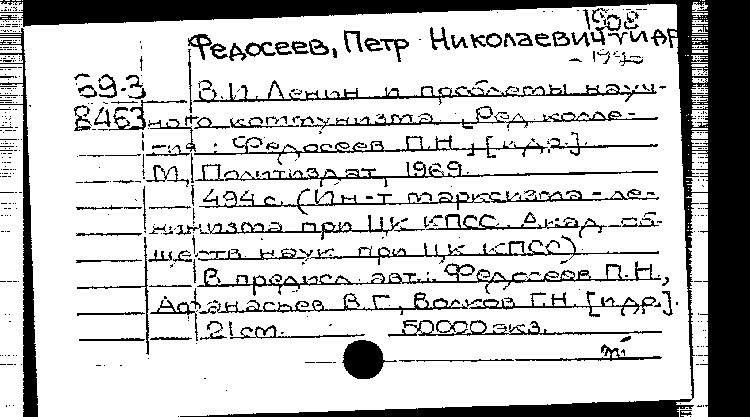 1908
Федосеев, Петр Николаевич и др
69-3 В.И. Ленин и проблемы науч-
8463 ного коммунизма. [Ред. колле-
гия: Федосеев П.Н., [и др.].
М., Политиздат, 1969.
494 с. (Ин-т марксизма-ле-
нинизма при ЦК КПСС. Акад. об-
ществ. наук при ЦК КПСС)
В предисл. авт.: Федосеев П.Н.,
Афанасьев В.Г., Волков Г.Н. [и др.].
21 см. 50000 экз.